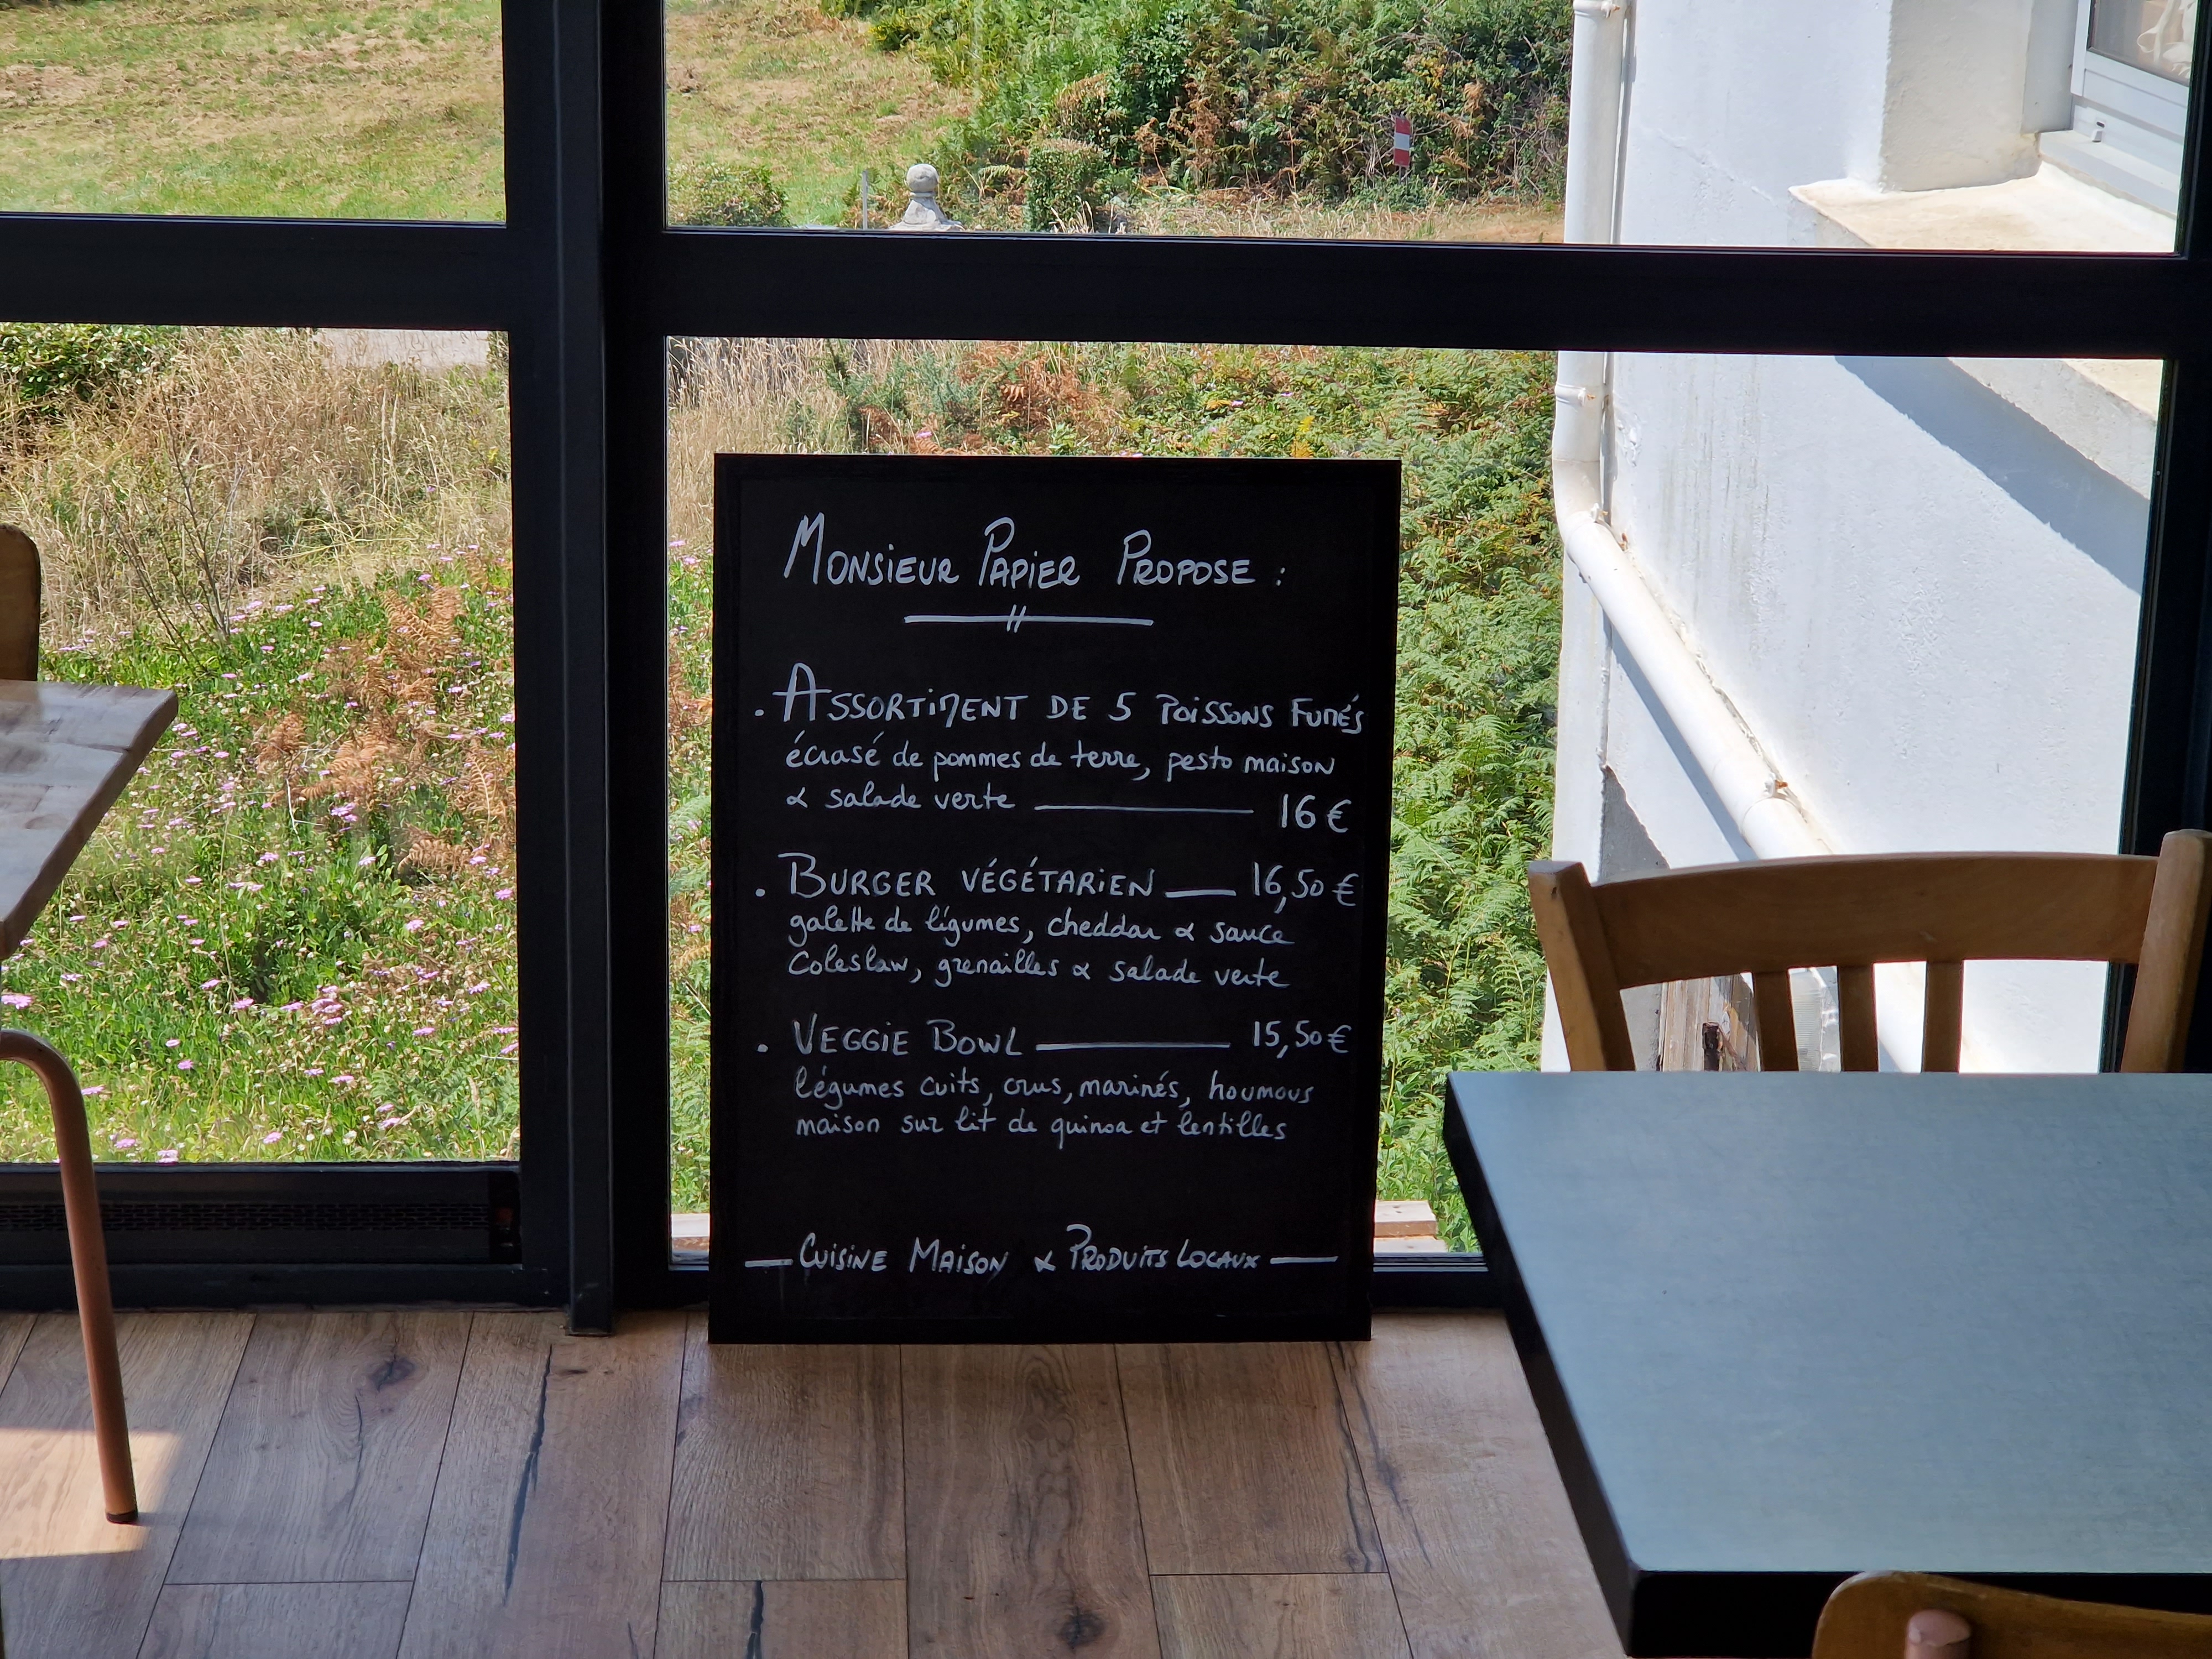 MONSIEUR PAPIER PROPOSE :
. ASSORTIMENT DE 5 POISSONS FUMÉS
écrasé de pommes de terre, pesto maison
& salade verte — 16 €
. BURGER VÉGÉTARIEN — 16,50 €
galette de légumes, cheddar & sauce
Coleslaw, grenailles & salade verte
. VEGGIE BOWL — 15,50 €
légumes cuits, crus, marinés, houmous
maison sur lit de quinoa et lentilles
— CUISINE MAISON & PRODUITS LOCAUX —